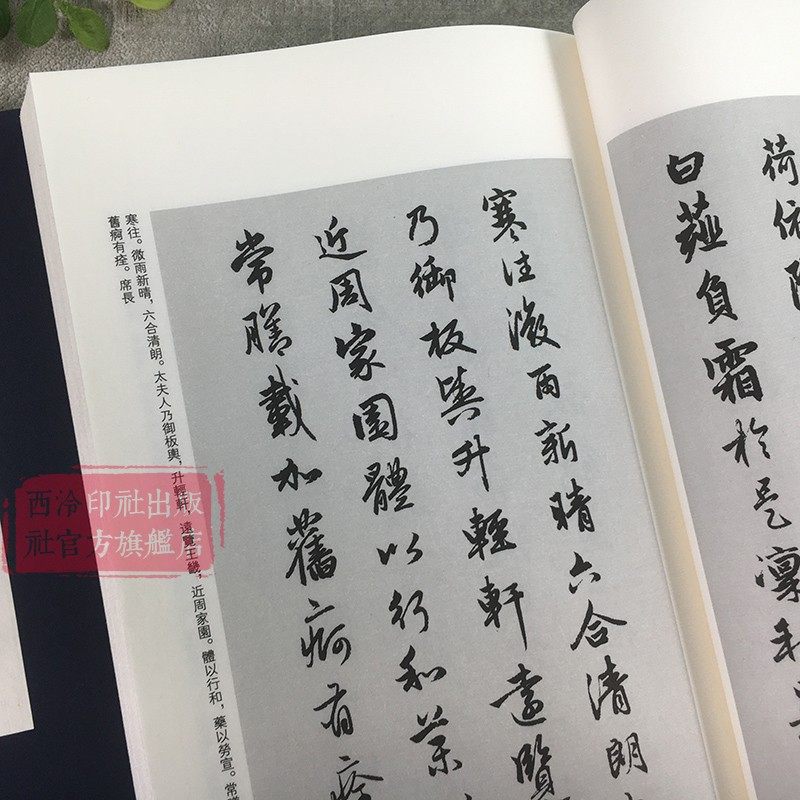 荷依陰
白薤負霜於是凛秋
寒往微雨新晴六合清朗
乃御板輿升輕軒遠覽
近周家園體以行和藥
常膳載加舊痾有痊
寒往。微雨新晴，六合清朗。太夫人乃御板輿，升輕軒，遠覽王畿，近周家園。體以行和，藥以勞宣。常
舊痾有痊。席長
西泠印社出版
社官方旗艦店